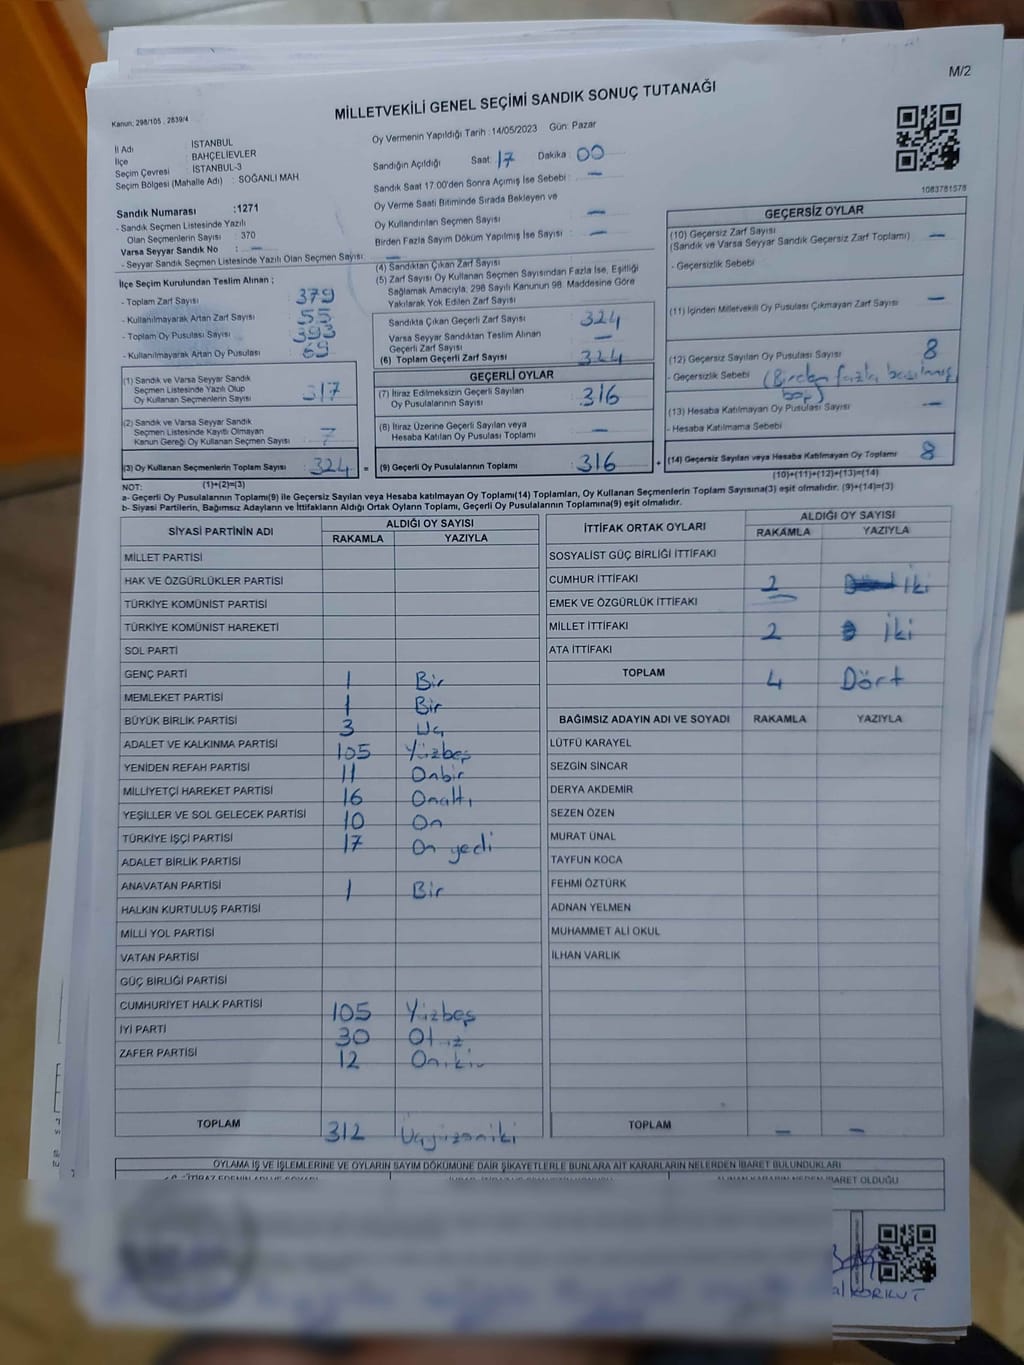 M/2
MİLLETVEKİLİ GENEL SEÇİMİ SANDIK SONUÇ TUTANAĞI
Kanun: 298/105 , 2839/4
İl Adı : İSTANBUL
İlçe : BAHÇELİEVLER
Seçim Çevresi : İSTANBUL-3
Seçim Bölgesi (Mahalle Adı) : SOĞANLI MAH
Sandık Numarası :1271
- Sandık Seçmen Listesinde Yazılı
Olan Seçmenlerin Sayısı : 370
Varsa Seyyar Sandık No : –
- Seyyar Sandık Seçmen Listesinde Yazılı Olan Seçmen Sayısı: –
Oy Vermenin Yapıldığı Tarih : 14/05/2023 Gün: Pazar
Sandığın Açıldığı Saat: 17 Dakika: 00
Sandık Saat 17:00'den Sonra Açımış İse Sebebi : –
Oy Verme Saati Bitiminde Sırada Bekleyen ve
Oy Kullandırılan Seçmen Sayısı –
Birden Fazla Sayım Döküm Yapılmış İse Sayısı : –
1083781578
İlçe Seçim Kurulundan Teslim Alınan ;
- Toplam Zarf Sayısı : 379
- Kullanılmayarak Artan Zarf Sayısı : 55
- Toplam Oy Pusulası Sayısı : 393
- Kullanılmayarak Artan Oy Pusulası : 69
(1) Sandık ve Varsa Seyyar Sandık
Seçmen Listesinde Yazılı Olup
Oy Kullanan Seçmenlerin Sayısı : 317
(2) Sandık ve Varsa Seyyar Sandık
Seçmen Listesinde Kayıtlı Olmayan
Kanun Gereği Oy Kullanan Seçmen Sayısı : 7
(3) Oy Kullanan Seçmenlerin Toplam Sayısı : 324
(1)+(2)=(3)
(4) Sandıktan Çıkan Zarf Sayısı
(5) Zarf Sayısı Oy Kullanan Seçmen Sayısından Fazla İse, Eşitliği
Sağlamak Amacıyla, 298 Sayılı Kanunun 98. Maddesine Göre
Yakılarak Yok Edilen Zarf Sayısı
Sandıkta Çıkan Geçerli Zarf Sayısı : 324
Varsa Seyyar Sandıktan Teslim Alınan
Geçerli Zarf Sayısı : –
(6) Toplam Geçerli Zarf Sayısı : 324
GEÇERLİ OYLAR
(7) İtiraz Edilmeksizin Geçerli Sayılan
Oy Pusulalarının Sayısı : 316
(8) İtiraz Üzerine Geçerli Sayılan veya
Hesaba Katılan Oy Pusulası Toplamı : –
= (9) Geçerli Oy Pusulalarının Toplamı : 316
GEÇERSİZ OYLAR
(10) Geçersiz Zarf Sayısı
(Sandık ve Varsa Seyyar Sandık Geçersiz Zarf Toplamı) –
- Geçersizlik Sebebi
(11) İçinden Milletvekili Oy Pusulası Çıkmayan Zarf Sayısı –
(12) Geçersiz Sayılan Oy Pusulası Sayısı 8
- Geçersizlik Sebebi (Birden fazla basılmış
(13) Hesaba Katılmayan Oy Pusulası Sayısı –
- Hesaba Katılmama Sebebi
+ (14) Geçersiz Sayılan veya Hesaba Katılmayan Oy Toplamı 8
(10)+(11)+(12)+(13)=(14)
NOT:
a- Geçerli Oy Pusulalarının Toplamı(9) ile Geçersiz Sayılan veya Hesaba katılmayan Oy Toplamı(14) Toplamları, Oy Kullanan Seçmenlerin Toplam Sayısına(3) eşit olmalıdır. (9)+(14)=(3)
b- Siyasi Partilerin, Bağımsız Adayların ve İttifakların Aldığı Ortak Oyların Toplamı, Geçerli Oy Pusulalarının Toplamına(9) eşit olmalıdır.
SİYASİ PARTİNİN ADI ALDIĞI OY SAYISI
RAKAMLA YAZIYLA
MİLLET PARTİSİ
HAK VE ÖZGÜRLÜKLER PARTİSİ
TÜRKİYE KOMÜNİST PARTİSİ
TÜRKİYE KOMÜNİST HAREKETİ
SOL PARTİ
GENÇ PARTİ 1 Bir
MEMLEKET PARTİSİ 1 Bir
BÜYÜK BİRLİK PARTİSİ 3 Üç
ADALET VE KALKINMA PARTİSİ 105 Yüzbeş
YENİDEN REFAH PARTİSİ 11 Onbir
MİLLİYETÇİ HAREKET PARTİSİ 16 Onaltı
YEŞİLLER VE SOL GELECEK PARTİSİ 10 On
TÜRKİYE İŞÇİ PARTİSİ 17 On yedi
ADALET BİRLİK PARTİSİ
ANAVATAN PARTİSİ 1 Bir
HALKIN KURTULUŞ PARTİSİ
MİLLİ YOL PARTİSİ
VATAN PARTİSİ
GÜÇ BİRLİĞİ PARTİSİ
CUMHURİYET HALK PARTİSİ 105 Yüzbeş
İYİ PARTİ 30 Otuz
ZAFER PARTİSİ 12 Oniki
TOPLAM 312 Üçyüzoniki
İTTİFAK ORTAK OYLARI ALDIĞI OY SAYISI
RAKAMLA YAZIYLA
SOSYALİST GÜÇ BİRLİĞİ İTTİFAKI
CUMHUR İTTİFAKI 2 İki
EMEK VE ÖZGÜRLÜK İTTİFAKI
MİLLET İTTİFAKI 2 İki
ATA İTTİFAKI
TOPLAM 4 Dört
BAĞIMSIZ ADAYIN ADI VE SOYADI RAKAMLA YAZIYLA
LÜTFÜ KARAYEL
SEZGİN SİNCAR
DERYA AKDEMİR
SEZEN ÖZEN
MURAT ÜNAL
TAYFUN KOCA
FEHMİ ÖZTÜRK
ADNAN YELMEN
MUHAMMET ALİ OKUL
İLHAN VARLIK
TOPLAM – –
OYLAMA İŞ VE İŞLEMLERİNE VE OYLARIN SAYIM DÖKÜMÜNE DAİR ŞİKAYETLERLE BUNLARA AİT KARARLARIN NELERDEN İBARET BULUNDUKLARI
İBARET OLDUĞU
KORKUT